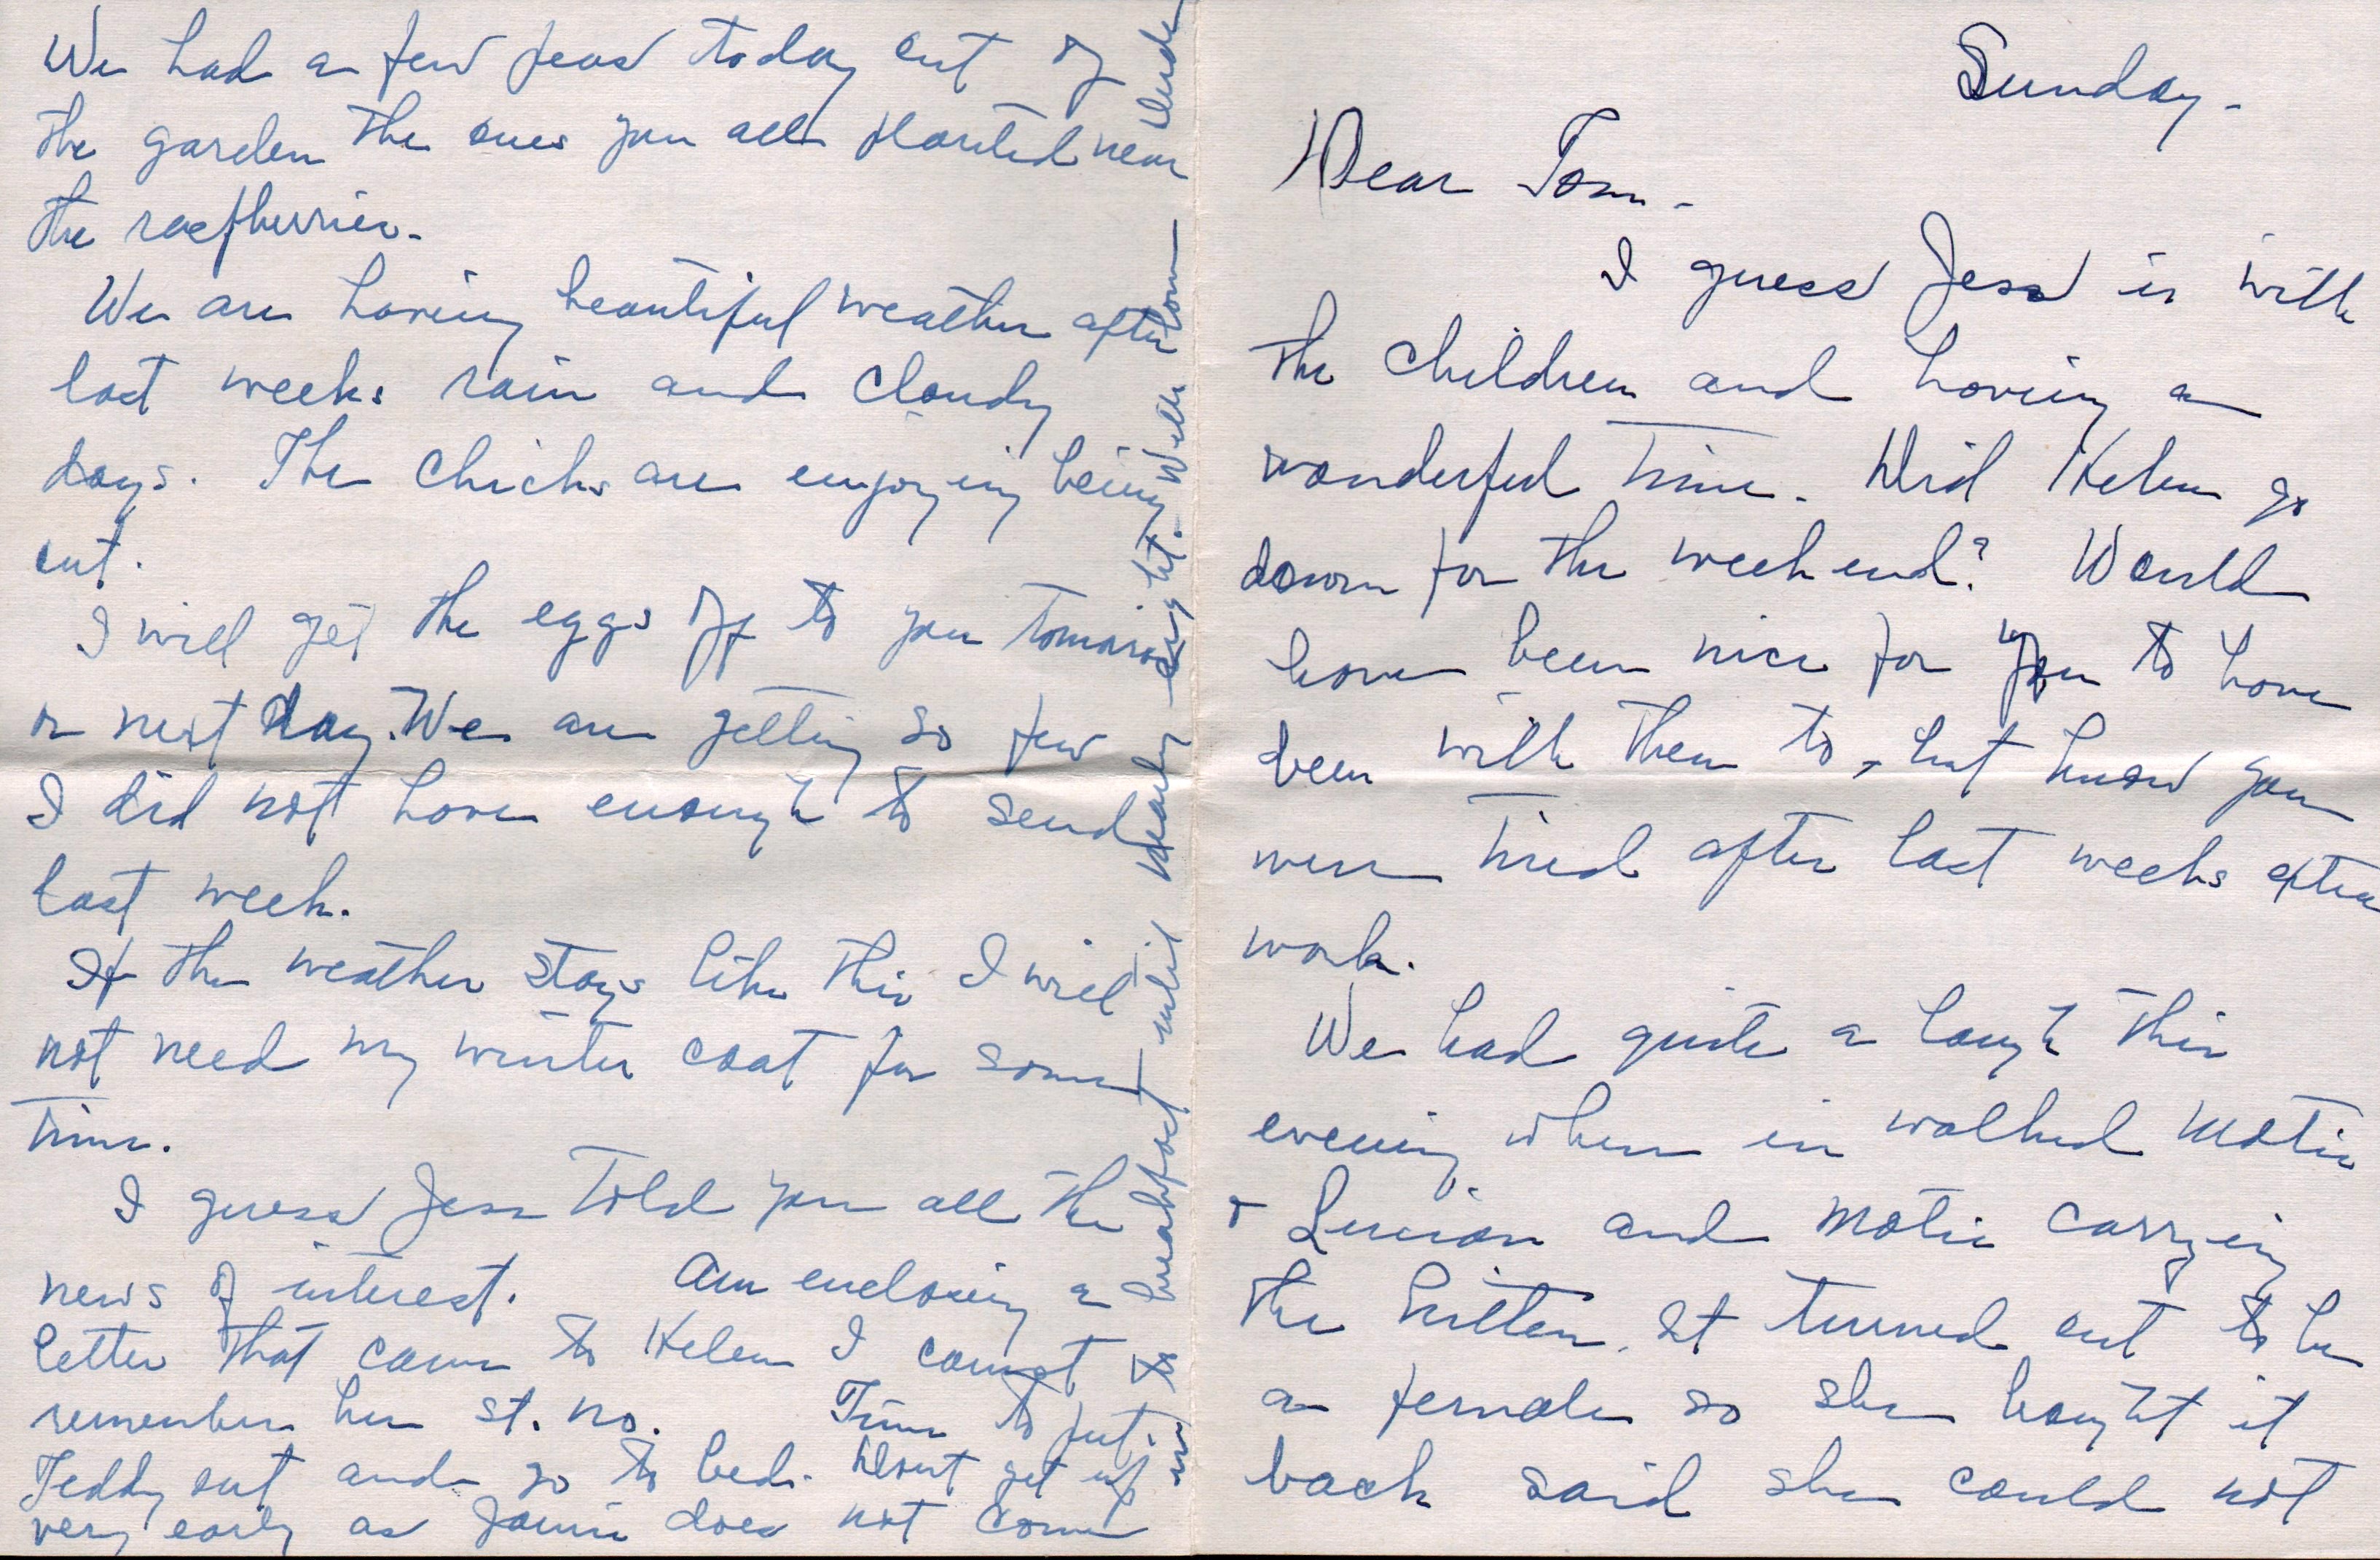 Sunday.
Dear Tom -
I guess Jess is with
the children and having a
wonderful time. Did Helen go
down for the week end? Would
have been nice for you to have
been with them to, but know you
were tired after last weeks extra
work.
We had quite a laugh this
evening when in walked Matie
+ Lucian and Matie carrying
the kitten. It turned out to be
a female so she bought it
back said she could not
We had a few peas today out of
the garden the ones you all planted near
the raspberries.
We are having beautiful weather after
last weeks rain and cloudy
days. The chicks are enjoying being
out.
I will get the eggs off to you tomorrow
or next day. We are getting so few
I did not have enough to send
last week.
If the weather stays like this I will
not need my winter coat for some
time.
I guess Jess told you all the
news of interest. Am enclosing a
letter that came to Helen I cannot
remember her st. no. Time to put
Teddy out and go to bed. Dont get up
very early as Jamie does not come
in to breakfast until nearly eight. With love